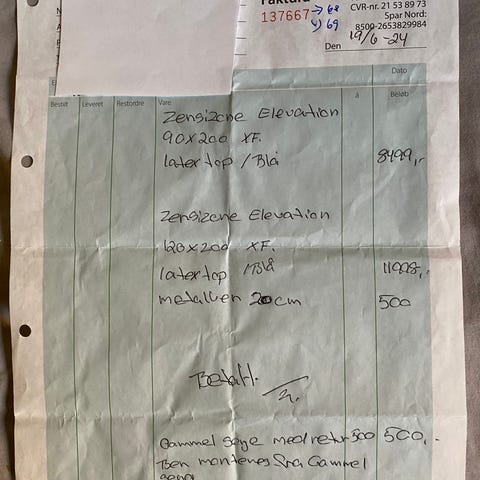 Faktura
137667 → 68
4) 69
CVR-nr. 21 53 89 73
Spar Nord:
8500-2653829984
Den 19/6-24
Dato
Bestilt Leveret Restordre Vare á Beløb
Zensizone Elevation
90x200 XF.
latex top / Blå 8499,-
Zensizone Elevation
120x200 XF.
latex top / Blå 11998,-
metalben 20cm 500
Betalt.
Gammel senge med retur 500 500,-
Ben monteres fra Gammel
seng